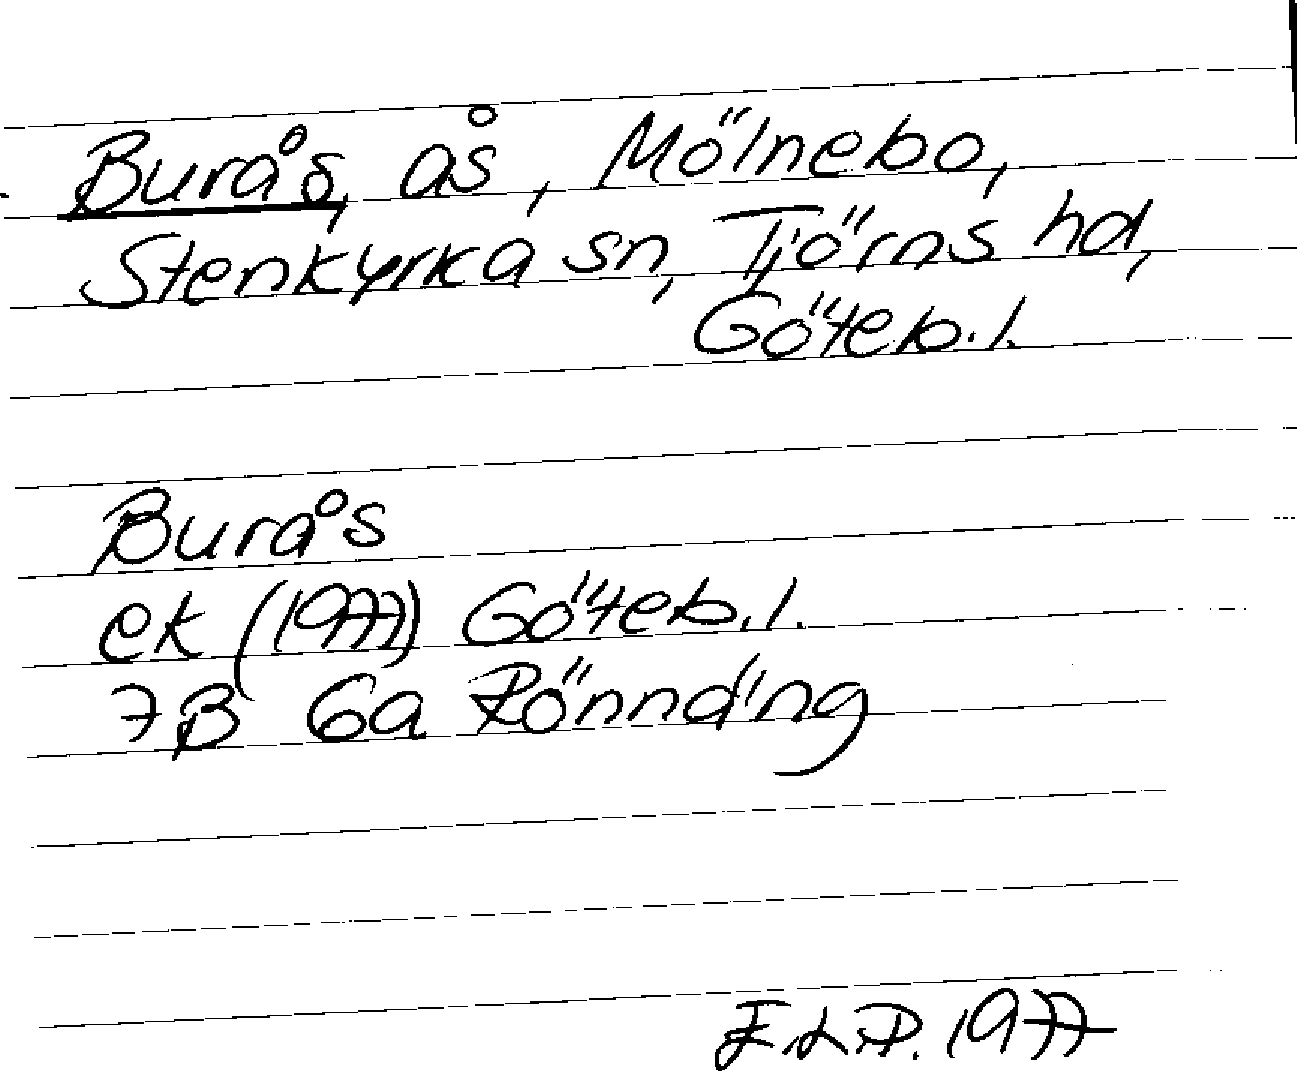 Burås, ås, Mölnebo,
Stenkyrka sn, Tjörns hd,
Göteb.l.
Burås
ek (1977) Göteb.l.
7B 6a Rönnäng
E.L.P. 1977